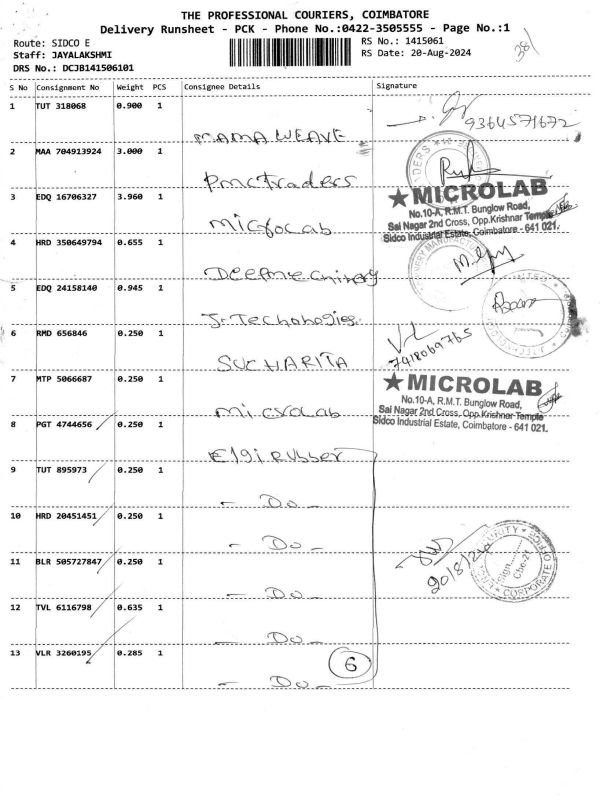 THE PROFESSIONAL COURIERS, COIMBATORE
Delivery Runsheet - PCK - Phone No.:0422-3505555 - Page No.:1
Route: SIDCO E
RS No.: 1415061
Staff: JAYALAKSHMI
RS Date: 20-Aug-2024
DRS No.: DCJB141506101
38
S No Consignment No Weight PCS Consignee Details Signature
1 TUT 318068 0.900 1
9364571672
MAMA WEAVE
2 MAA 704913924 3.000 1
Pmctraders
3 EDQ 16706327 3.960 1
microlab
★ MICROLAB
No.10-A, R.M.T. Bunglow Road,
Sai Nagar 2nd Cross, Opp.Krishnar Temple
Sidco Industrial Estate, Coimbatore - 641 021.
4 HRD 350649794 0.655 1
Deepmechinery
5 EDQ 24158140 0.945 1
J-Techonogies
6 RMD 656846 0.250 1
7418069765
SUCHARITA
7 MTP 5066687 0.250 1
microlab
★ MICROLAB
No.10-A, R.M.T. Bunglow Road,
Sai Nagar 2nd Cross, Opp.Krishnar Temple
Sidco Industrial Estate, Coimbatore - 641 021.
8 PGT 4744656 0.250 1
Elgi rubber
9 TUT 895973 0.250 1
- Do -
10 HRD 20451451 0.250 1
- Do -
11 BLR 505727847 0.250 1
20/8/24
CORPORATE OFFICE
Sign
Cbe-21
- Do -
12 TVL 6116798 0.635 1
- Do -
13 VLR 3260195 0.285 1
6
- Do -